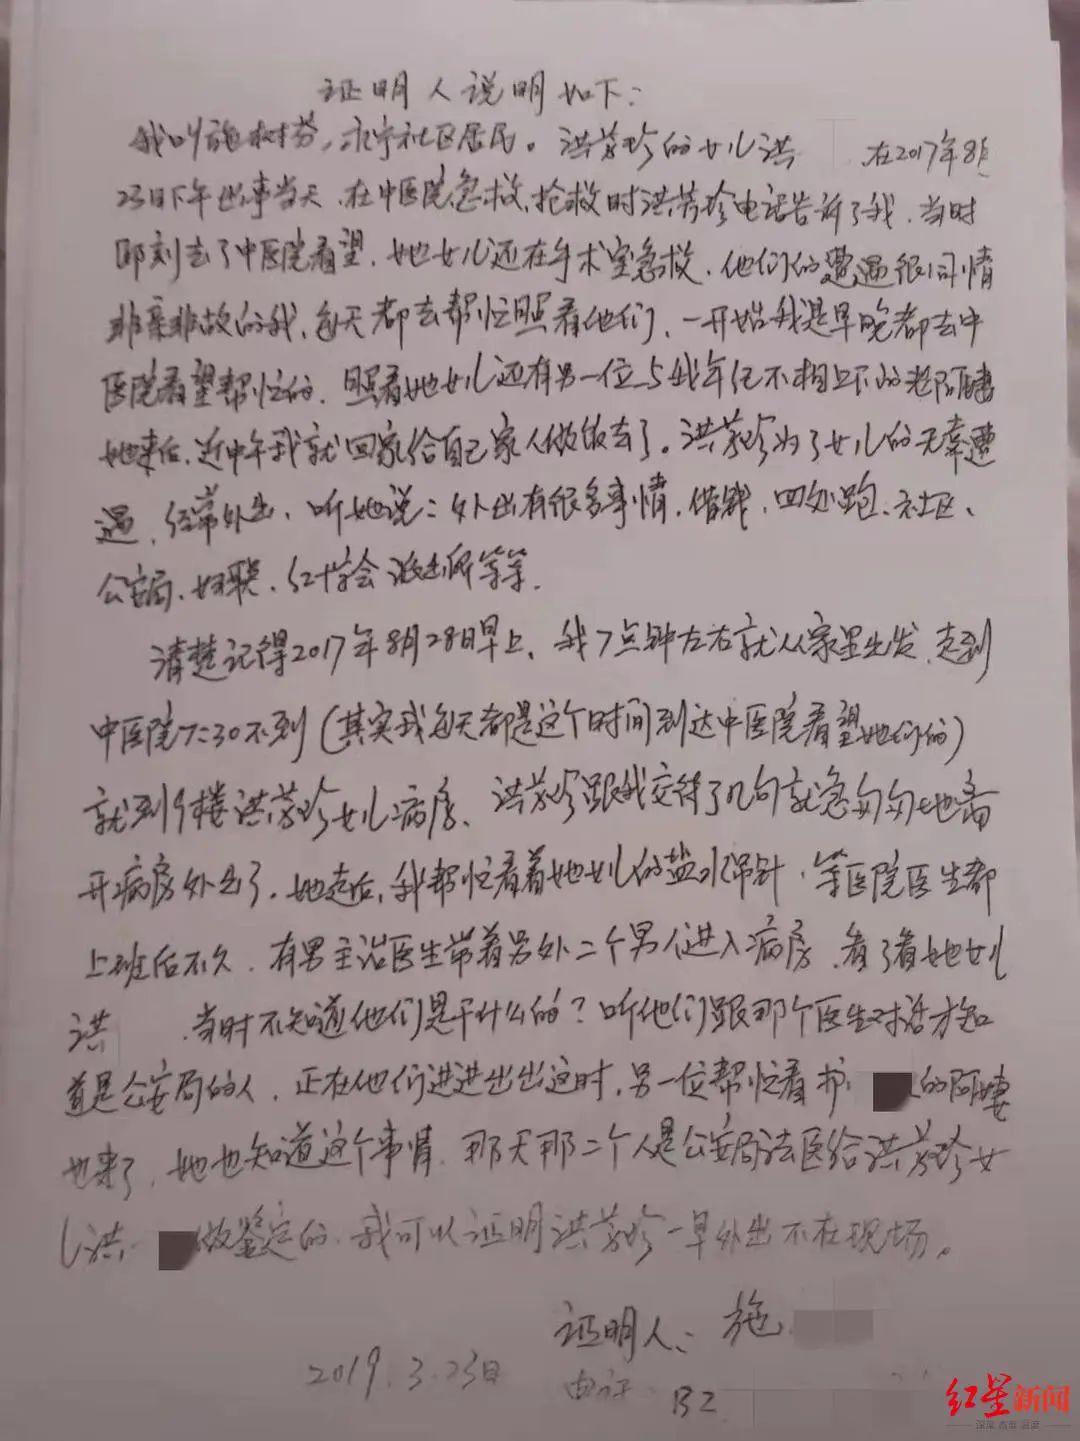 证明人说明如下：
我叫施树芬，永宁社区居民。洪芳珍的女儿洪 在2017年8月
23日下午出事当天、在中医院急救、抢救时洪芳珍电话告诉了我、当时
即刻去了中医院看望、她女儿还在手术室急救、他们的遭遇很同情
非亲非故的我、每天都去帮忙照看他们、一开始我是早晚都去中
医院看望帮忙的、照看她女儿还有另一位与我年纪不相上下的老阿姨
她来后、近中午我就回家给自己家人做饭去了。洪芳珍为了女儿的无辜遭
遇、经常外出、听她说：外出有很多事情、借钱、四处跑、社区、
公安局、妇联、红十字会派出所等等.
清楚记得2017年8月28日早上、我7点钟左右就从家里出发、走到
中医院7:30不到(其实我每天都是这个时间到达中医院看望她们的)
就到9楼洪芳珍女儿病房、洪芳珍跟我交待了几句就急匆匆地离
开病房外出了、她走后、我帮忙看着她女儿的盐水吊针、等医院医生都
上班后不久、有男主治医生带着另外二个男人进入病房、看了看她女儿
洪 、当时不知道他们是干什么的？听他们跟那个医生对话才知
道是公安局的人、正在他们进进出出这时、另一位帮忙看护 的阿姨
也来了、她也知道这个事情、那天那二个人是公安局法医给洪芳珍女
儿洪 做鉴定的、我可以证明洪芳珍一早外出不在现场。
证明人：施
2019.3.23日
电话 132
红星新闻
深度 态度 温度